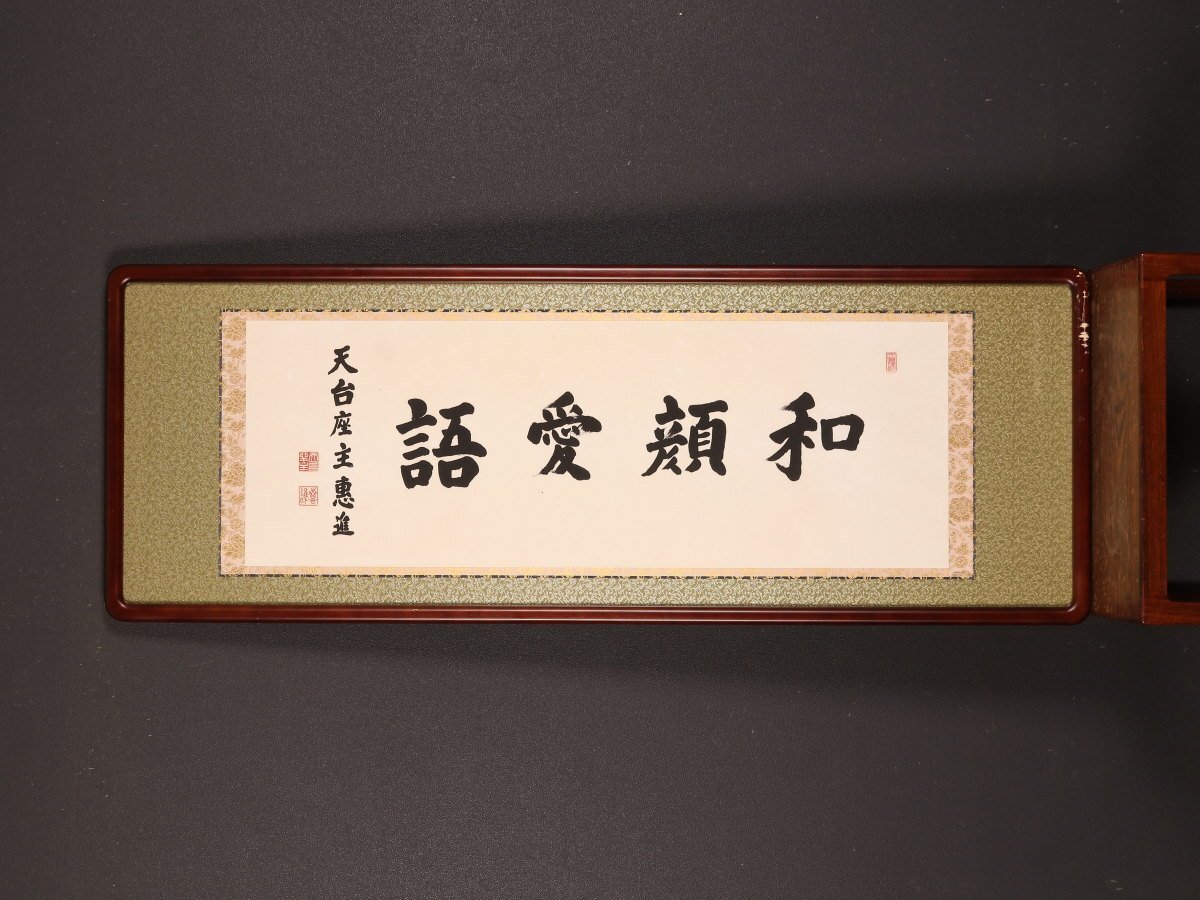 和顔愛語
天台座主惠進